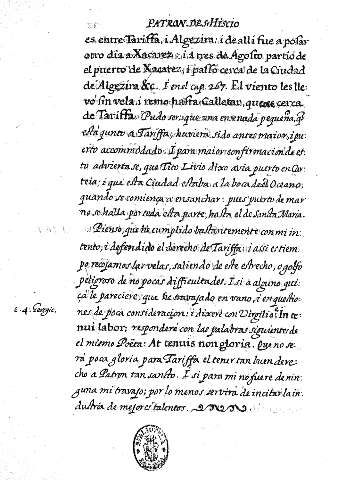 PATRON. DE S. HISCIO
es, entre Tariffa, i Algezira; i de alli fue a posar
otro dia a Xacarez: i a tres de Agosto partio de
el puerto de Xacarez, i passo cerca de la Ciudad
de Algezira &c. I en el cap. 267. El viento les lle
vò sin vela, i remo hasta Calletar, que es cerca
de Tariffa. Pudo ser, que una ensenada pequeña, q̃
està junto a Tariffa, huviera sido antes maior, i pu
erto accommodado. I para maior confirmacion de es
to advierta se, que Tito Livio dixo avia puerto en Car
teia; i que esta Ciudad estaba a la boca del Oceano,
quando se comiença a ensanchar: pues puerto de mar
no se halla por toda esta parte, hasta el de Sancta Maria.
Pienso, que he cumplido bastantemente con mi in
tento, i defendido el derecho de Tariffa: i assi es tiem
po, recojamos las velas, saliendo de este estrecho, o golfo
peligroso de no pocas difficultades. I si a alguno qui
çà le pareciere, que he trabajado en vano, i en questio
nes de poca consideracion: i dixere con Virgilio: In te
nui labor; responderè con las palabras siguientes de
el mismo Poëta: At tenuis non gloria. Que no se
rà poca gloria para Tariffa el tener tan buen dere
cho a Patron tan sancto. I si para mi no fuere de nin
guna mi trabajo; por lo menos servirà de incitar la in
dustria de mejores talentos.
4. Georgic.
BIBLIOTECA